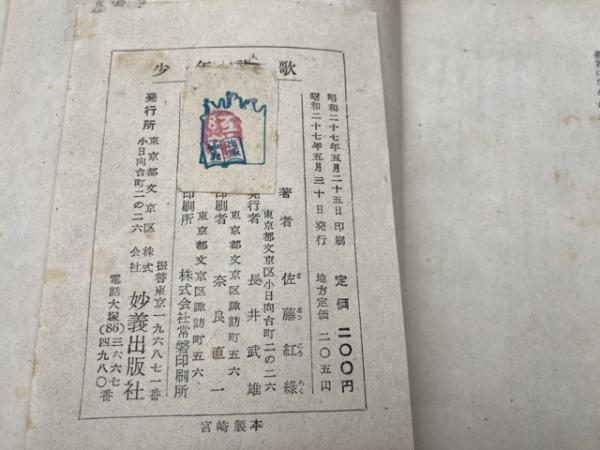 少年 歌
昭和二十七年五月二十五日 印刷
昭和二十七年五月三十日 発行
定価 二〇〇円
地方定価 二〇五円
著者 佐藤紅緑
さ とう こう ろく
東京都文京区小日向台町二の二六
発行者 長井武雄
東京都文京区諏訪町五六
印刷者 奈良直一
東京都文京区諏訪町五六
印刷所 株式会社常磐印刷所
発行所
東京都文京区
小日向台町二の二六
株式会社 妙義出版社
振替東京一九六八七一番
電話大塚(86)三六六七
四九八〇番
宮崎製本